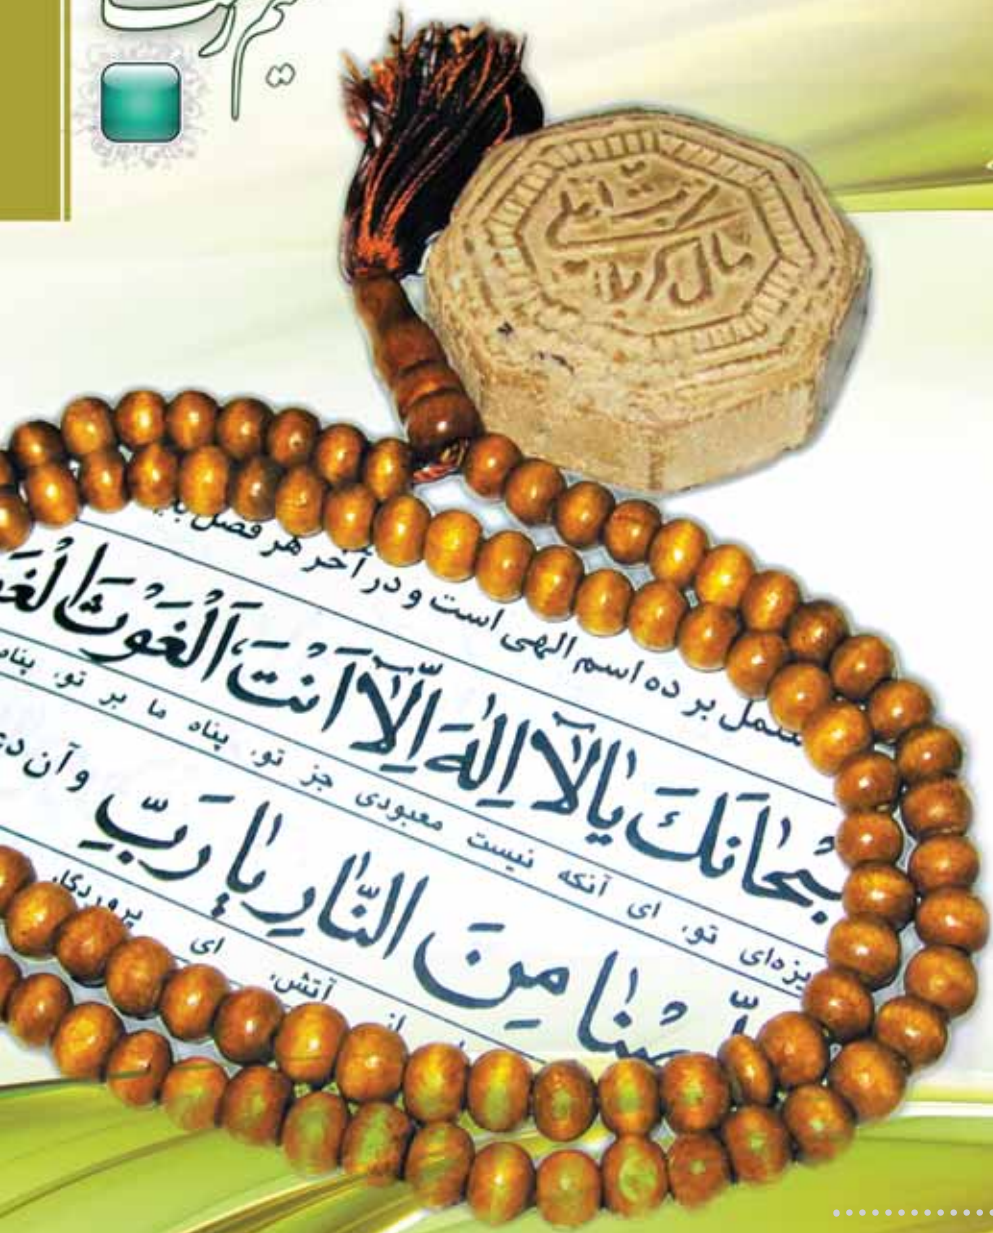 تربت اعلی
مال کربلا
شتمل بر ده اسم الهی است و در آخر هر فصل با
بْحانَكَ يٰالاۤ اِلٰهَ اِلاّۤ اَنْتَ اَلْغَوْثَ الْغَ
یزه‌ای تو، ای آنکه نیست معبودی جز تو، پناه ما بر تو، پناه
مِنَ النّٰارِ يٰا رَبِّ و آن
از آتش، ای پروردگا